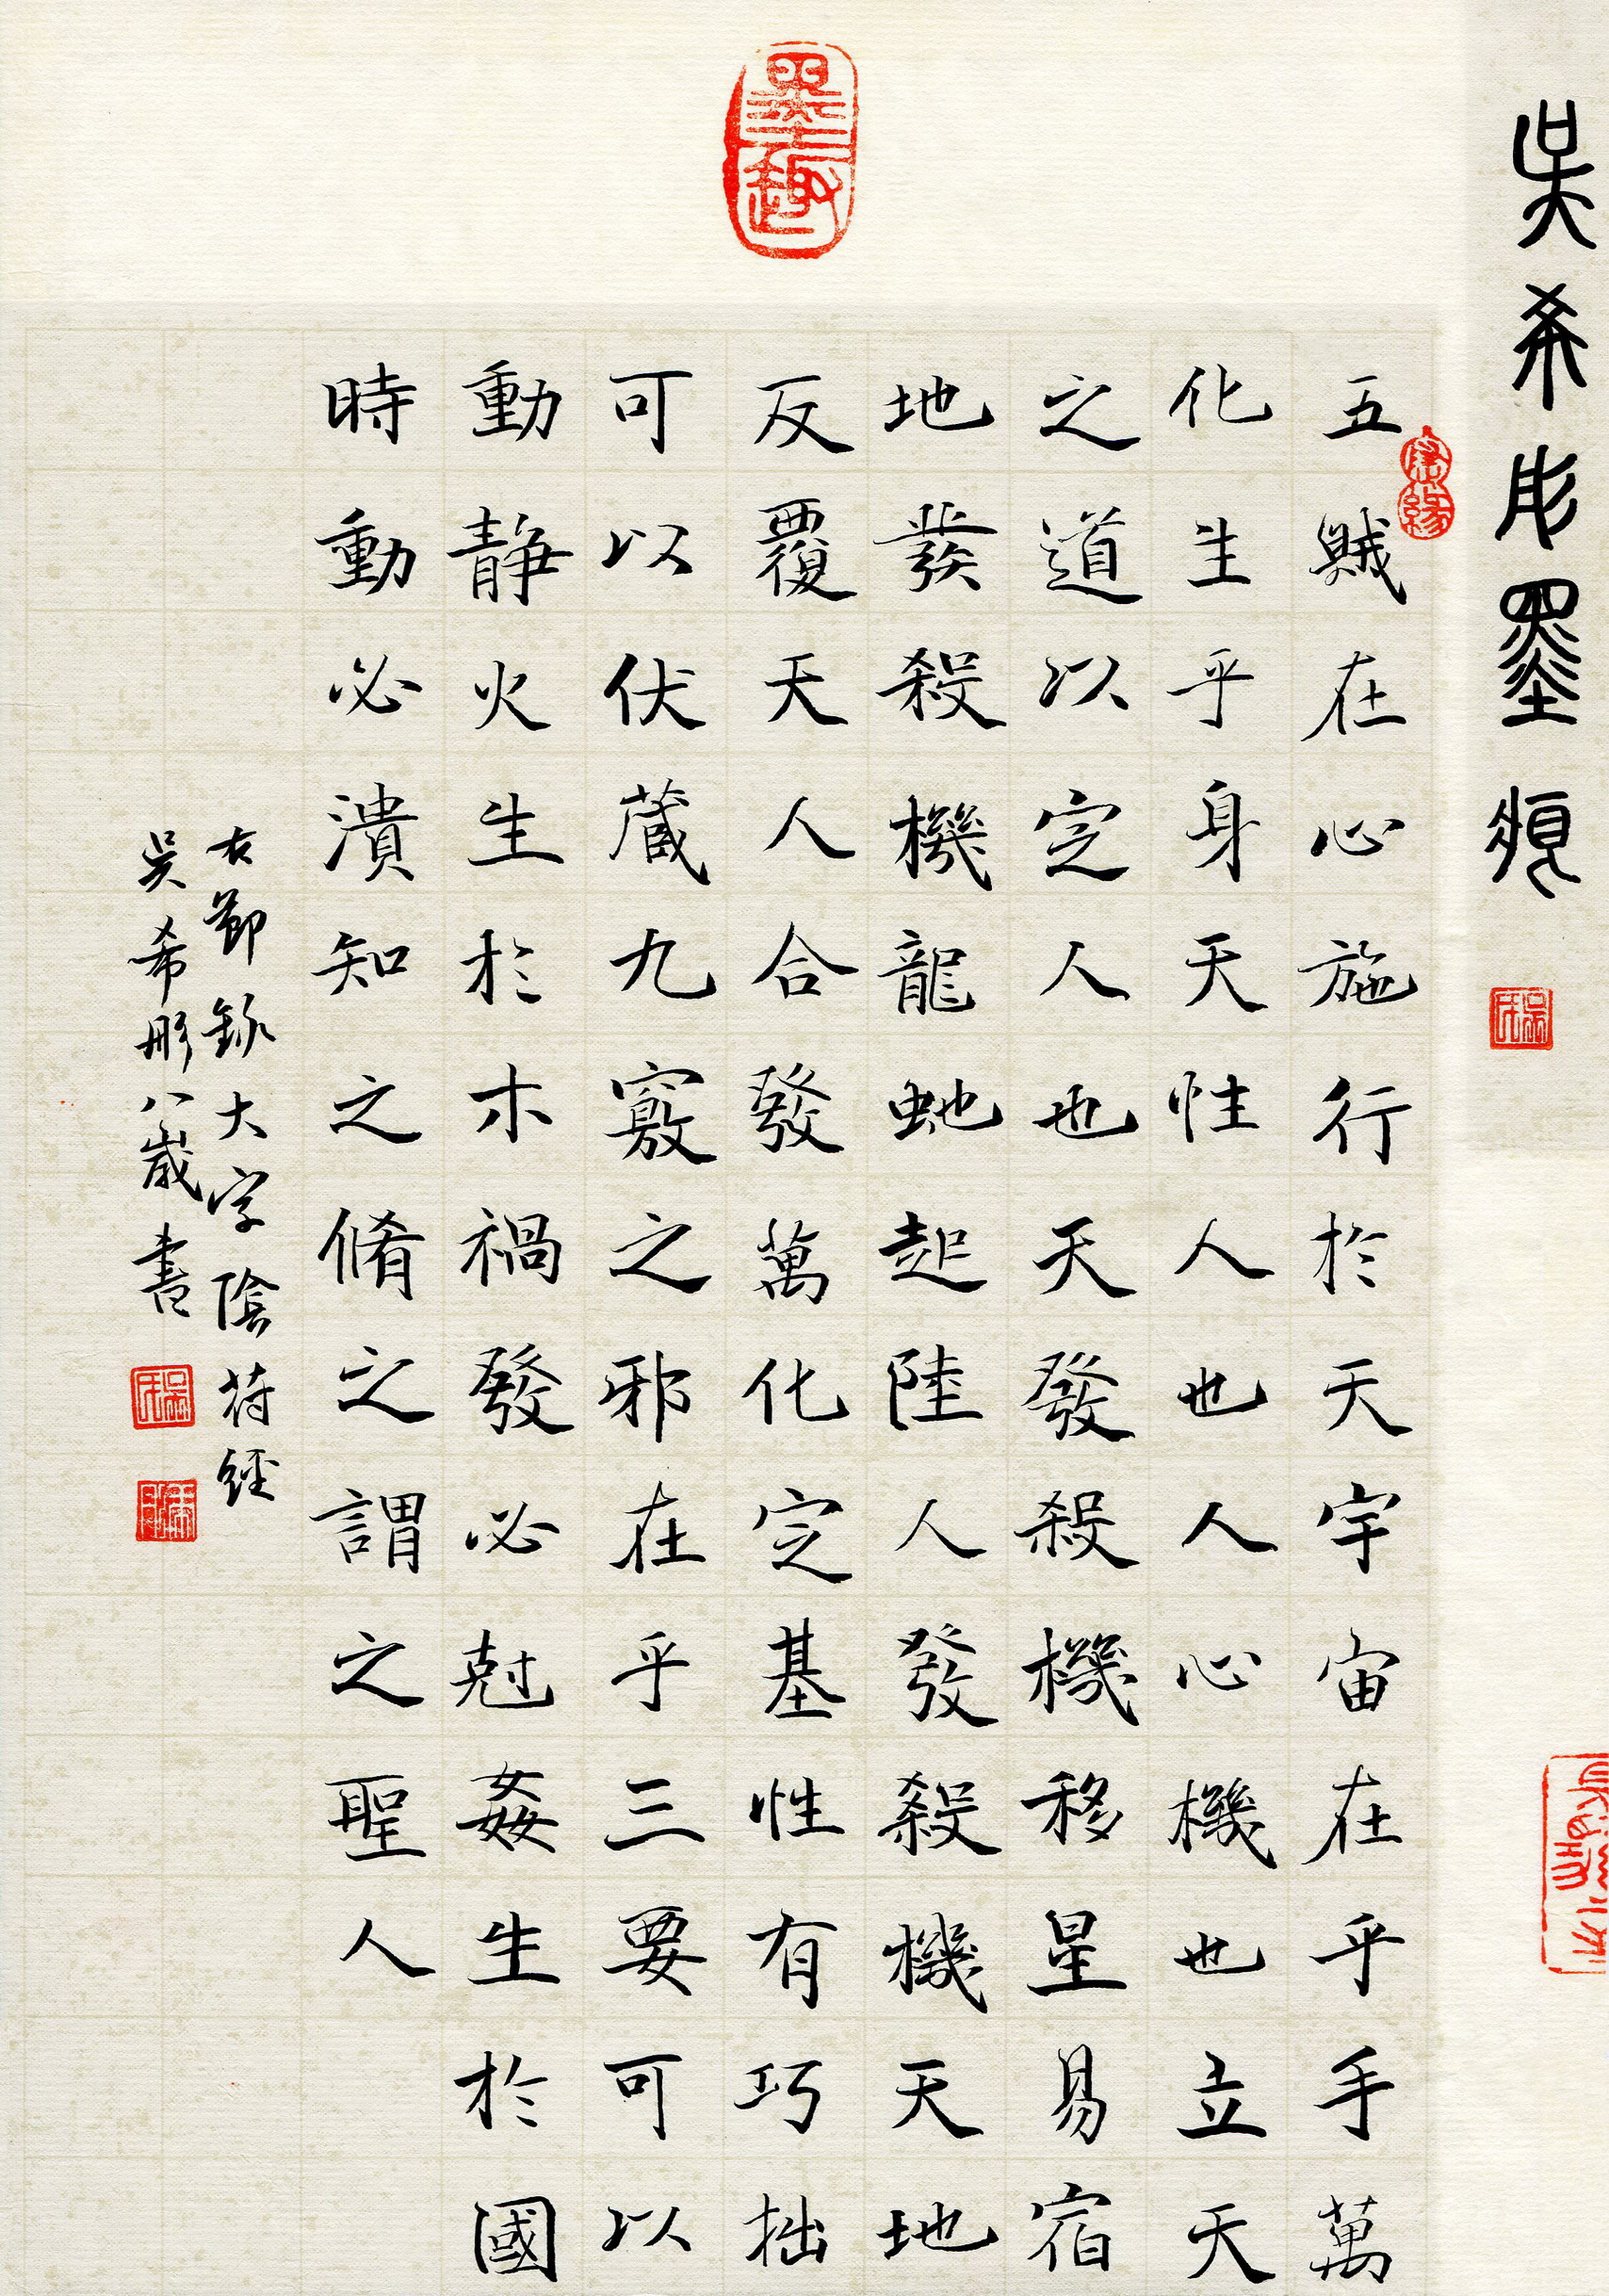 墨趣
吳希彤墨痕
五賊在心施行於天宇宙在乎手萬
化生乎身天性人也人心機也立天
之道以定人也天發殺機移星易宿
地發殺機龍虵起陸人發殺機天地
反覆天人合發萬化定基性有巧拙
可以伏藏九竅之邪在乎三要可以
動静火生於木禍發必尅姦生於國
時動必潰知之脩之謂之聖人
右節錄大字陰符經
吳希彤八歲書